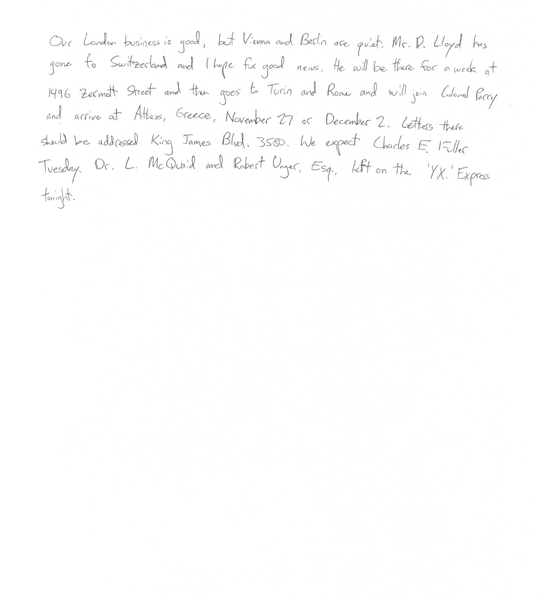 Our London business is good, but Vienna and Berlin are quiet. Mr. D. Lloyd has
gone to Switzerland and I hope for good news. He will be there for a week at
1496 Zermott Street and then goes to Turin and Rome and will join Colonel Parry
and arrive at Athens, Greece, November 27 or December 2. Letters there
should be addressed King James Blvd. 3580. We expect Charles E. Fuller
Tuesday. Dr. L. McQuaid and Robert Unger, Esq., left on the 'Y.X.' Express
tonight.